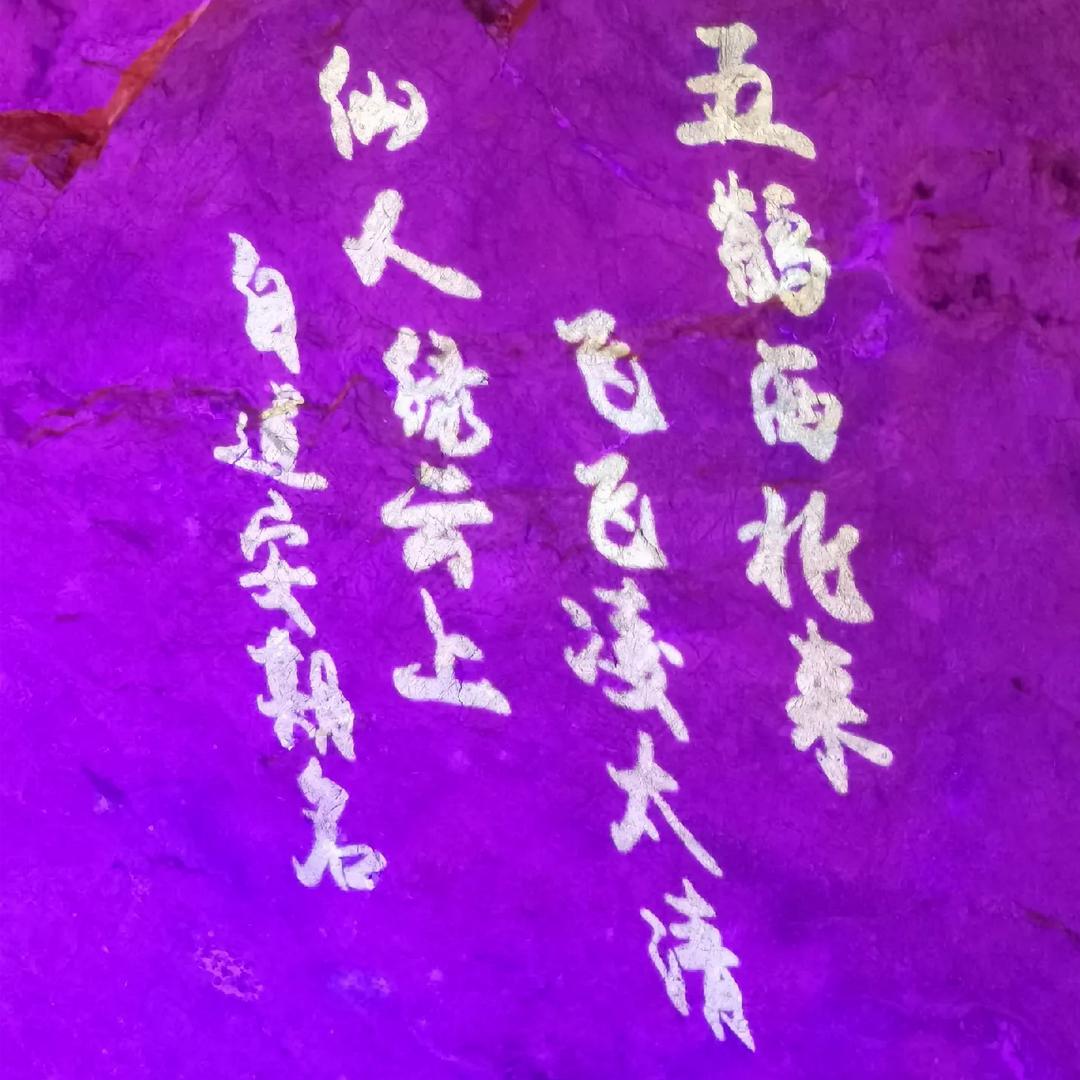 五鹤西北来
飞飞淩太清
仙人绿云上
自道安期名